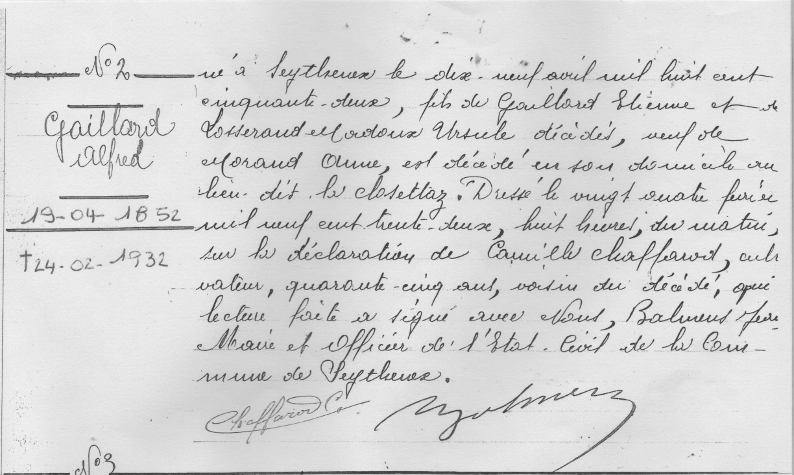 N° 2
Gaillard
Alfred
19-04-1852
†24-02-1932
né à Seythenex le dix-neuf avril mil huit cent
cinquante-deux, fils de Gaillard Etienne et de
Losserand-Madoux Ursule décédés, veuf de
Morand Anne, est décédé en son domicile au
lieu-dit le Closettaz. Dressé le vingt quatre février
mil neuf cent trente-deux, huit heures, du matin,
sur la déclaration de Camille Chaffarod, culti
vateur, quarante-cinq ans, voisin du décédé, qui
lecture faite a signé avec Nous, Balmens
Maire et Officier de l'Etat-Civil de la Com-
mune de Seythenex.
Chaffarod C.
N° 3